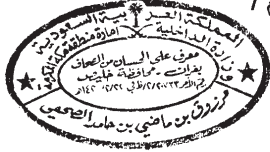 المملكة العربية السعودية
وزارة الداخلية
إمارة منطقة مكة المكرمة
معرف على الحسان من الصحاف
بغران - محافظة خليص
مرزوق بن ماضي بن حامد الصحفي